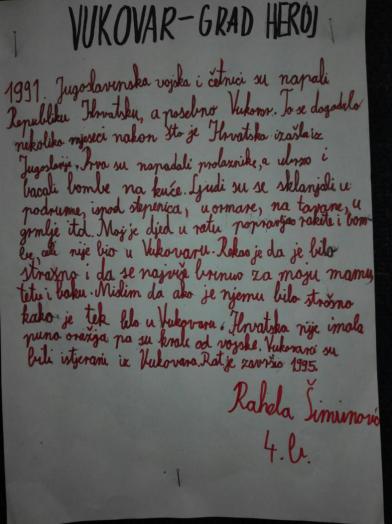 VUKOVAR-GRAD HEROJ
1991. Jugoslavenska vojska i četnici su napali
Republiku Hrvatsku, a posebno Vukovar. To se dogodelo
nekoliko mjeseci nakon što je Hrvatska izašla iz
Jugoslavije. Prva su napadali prolaznike, a ubrzo i
bacali bombe na kuće. Ljudi su se sklanjali u
podrume, ispod stepenica, u ormare, na tavane, u
grmlje itd. Moj je djed u ratu popravljao rakete i bom-
be, ali nije bio u Vukovaru. Rekao je da je bilo
strašno i da se najviše brinuo za moju mamu,
tetu i baku. Mislim da ako je njemu bilo strašno
kako je tek bilo u Vukovaru. Hrvatska nije imala
puno oružja pa su krali od vojske. Vukovarci su
bili istjerani iz Vukovara. Rat je završio 1995.
Rahela Šimunović
4. b.